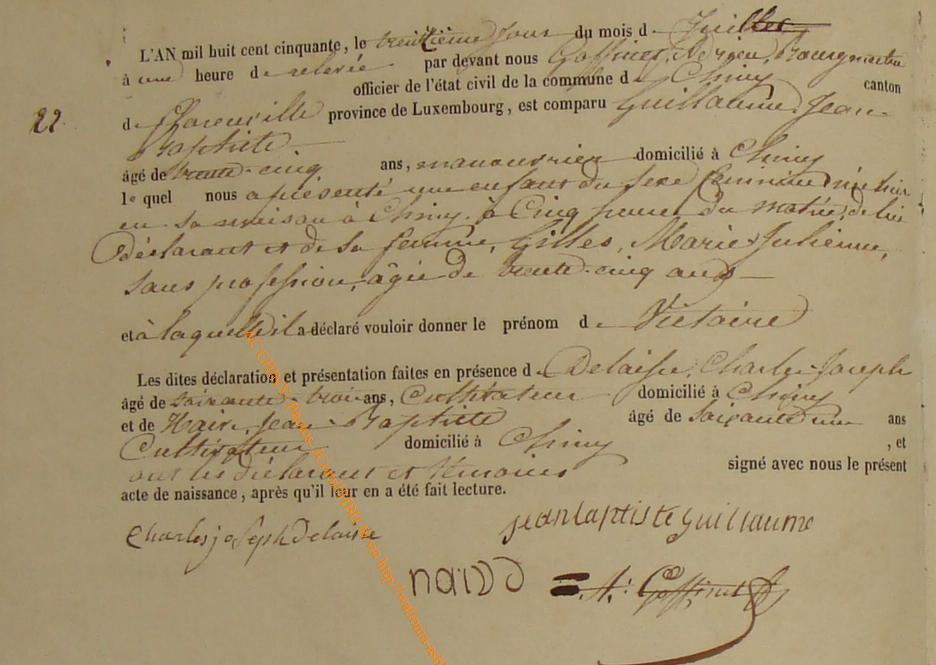 L'AN mil huit cent cinquante, le trentième jour du mois de Juillet
à une heure de relevée par devant nous Goffinet, Bourgmestre
officier de l'état civil de la commune de Chiny canton
22
de Florenville province de Luxembourg, est comparu Guillaume, Jean-
Baptiste.
âgé de trente-cinq ans, manouvrier domicilié à Chiny
lequel nous a présenté une enfant du sexe féminin née hier
en sa maison à Chiny, à Cinq heures du matin, de lui
Déclarant et de sa femme, Gilles, Marie-Julienne,
sans profession, âgée de trente-cinq ans
et à laquelle il a déclaré vouloir donner le prénom de Victoire
Les dites déclaration et présentation faites en présence de Delaisse, Charles-Joseph
âgé de soixante-trois ans, Cultivateur domicilié à Chiny
et de Jean-Baptiste âgé de soixante une ans
Cultivateur domicilié à Chiny , et
ont les déclarant et témoins signé avec nous le présent
acte de naissance, après qu'il leur en a été fait lecture.
Charles joseph Delaisse
jean baptiste guillaume
A. Goffinet